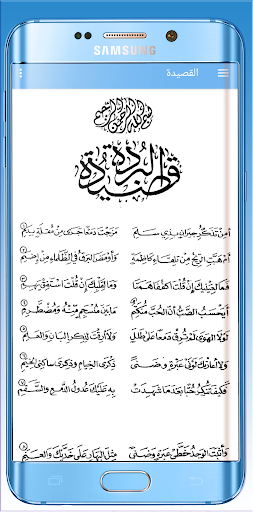 SAMSUNG
القصيدة
بسم الله الرحمن الرحيم
قصيدة البردة
أمن تذكر جيران بذي سلم مزجت دمعا جرى من مقلة بدم
أم هبت الريح من تلقاء كاظمة وأومض البرق في الظلماء من إضم
فما لعينيك إن قلت اكففا همتا وما لقلبك إن قلت استفق يهم
أيحسب الصب أن الحب منكتم ما بين منسجم منه ومضطرم
لولا الهوى لم ترق دمعا على طلل ولا أرقت لذكر البان والعلم
ولا أعارتك لوني عبرة وضنى ذكرى الخيام وذكرى ساكني الخيم
فكيف تنكر حبا بعد ما شهدت به عليك عدول الدمع والسقم
وأثبت الوجد خطي عبرة وضنى مثل البهار على خديك والعنم